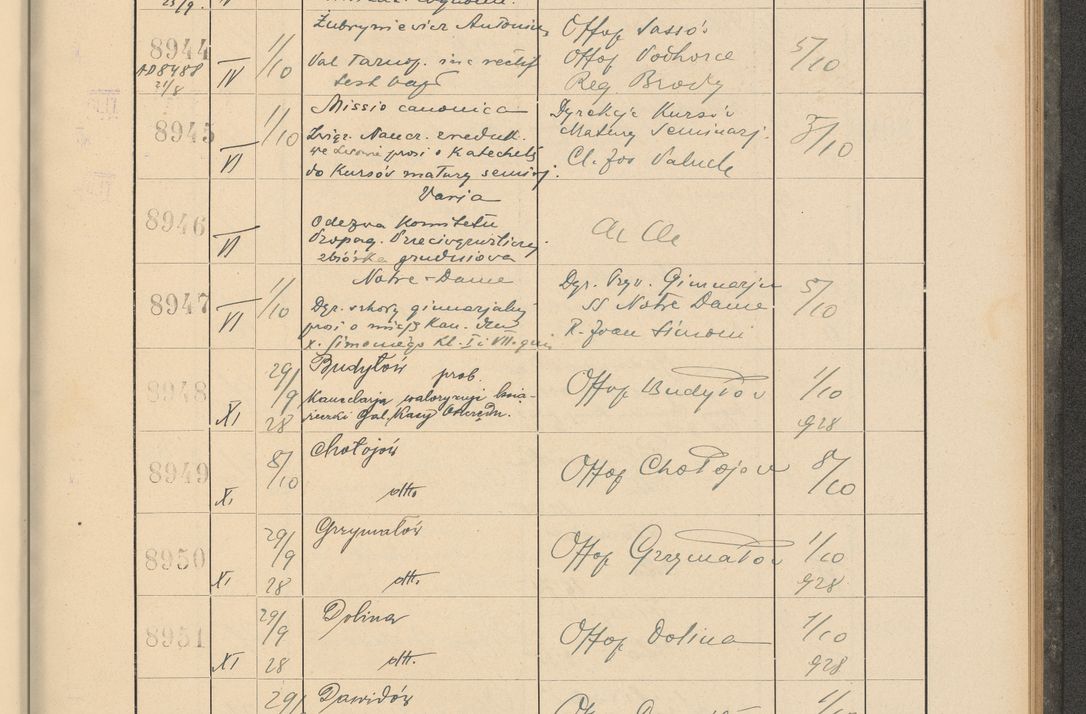 25/9.
8944
AD 8488
21/8
IV
1/10
Żubryniewicz Antonius
Val Tarnop. inc rectif
test bapt
Offop Sassów
Offop Podhorce
Reg. Brody
5/10
8945
VI
1/10
Missio canonica
Związ. Naucz. zreduk.
we Lwowie prosi o Katechetę
do Kursów matury seminarj.
Dyrekcja Kursów
Matury Seminarj.
Cl. Jos
5/10
8946
VI
Varia
Odezwa Komitetu
Propag. Przeciwgruźliczej
zbiórka grudniowa
8947
VI
1/10
Notre-Dame
Dyr. szkoły gimnazjalnej
prosi o
x. Simoniego Kl. I i VII gim
Dyr. Pryw. Gimnazjum
SS Notre Dame
R. Joan Simoni
5/10
8948
XI
29/9
28
Budyłów prob.
Kancelarja waloryzuje
Gal. Kasy Oszczędn.
Offop Budyłow
1/10
928
8949
XI
8/10
Chołojów
dtto
Offop Chołojow
8/10
8950
XI
29/9
28
Grzymałów
dtto
Offop Grzymałow
1/10
928
8951
XI
29/9
28
Dolina
dtto
Offop Dolina
1/10
928
29/
Dawidów
1/10